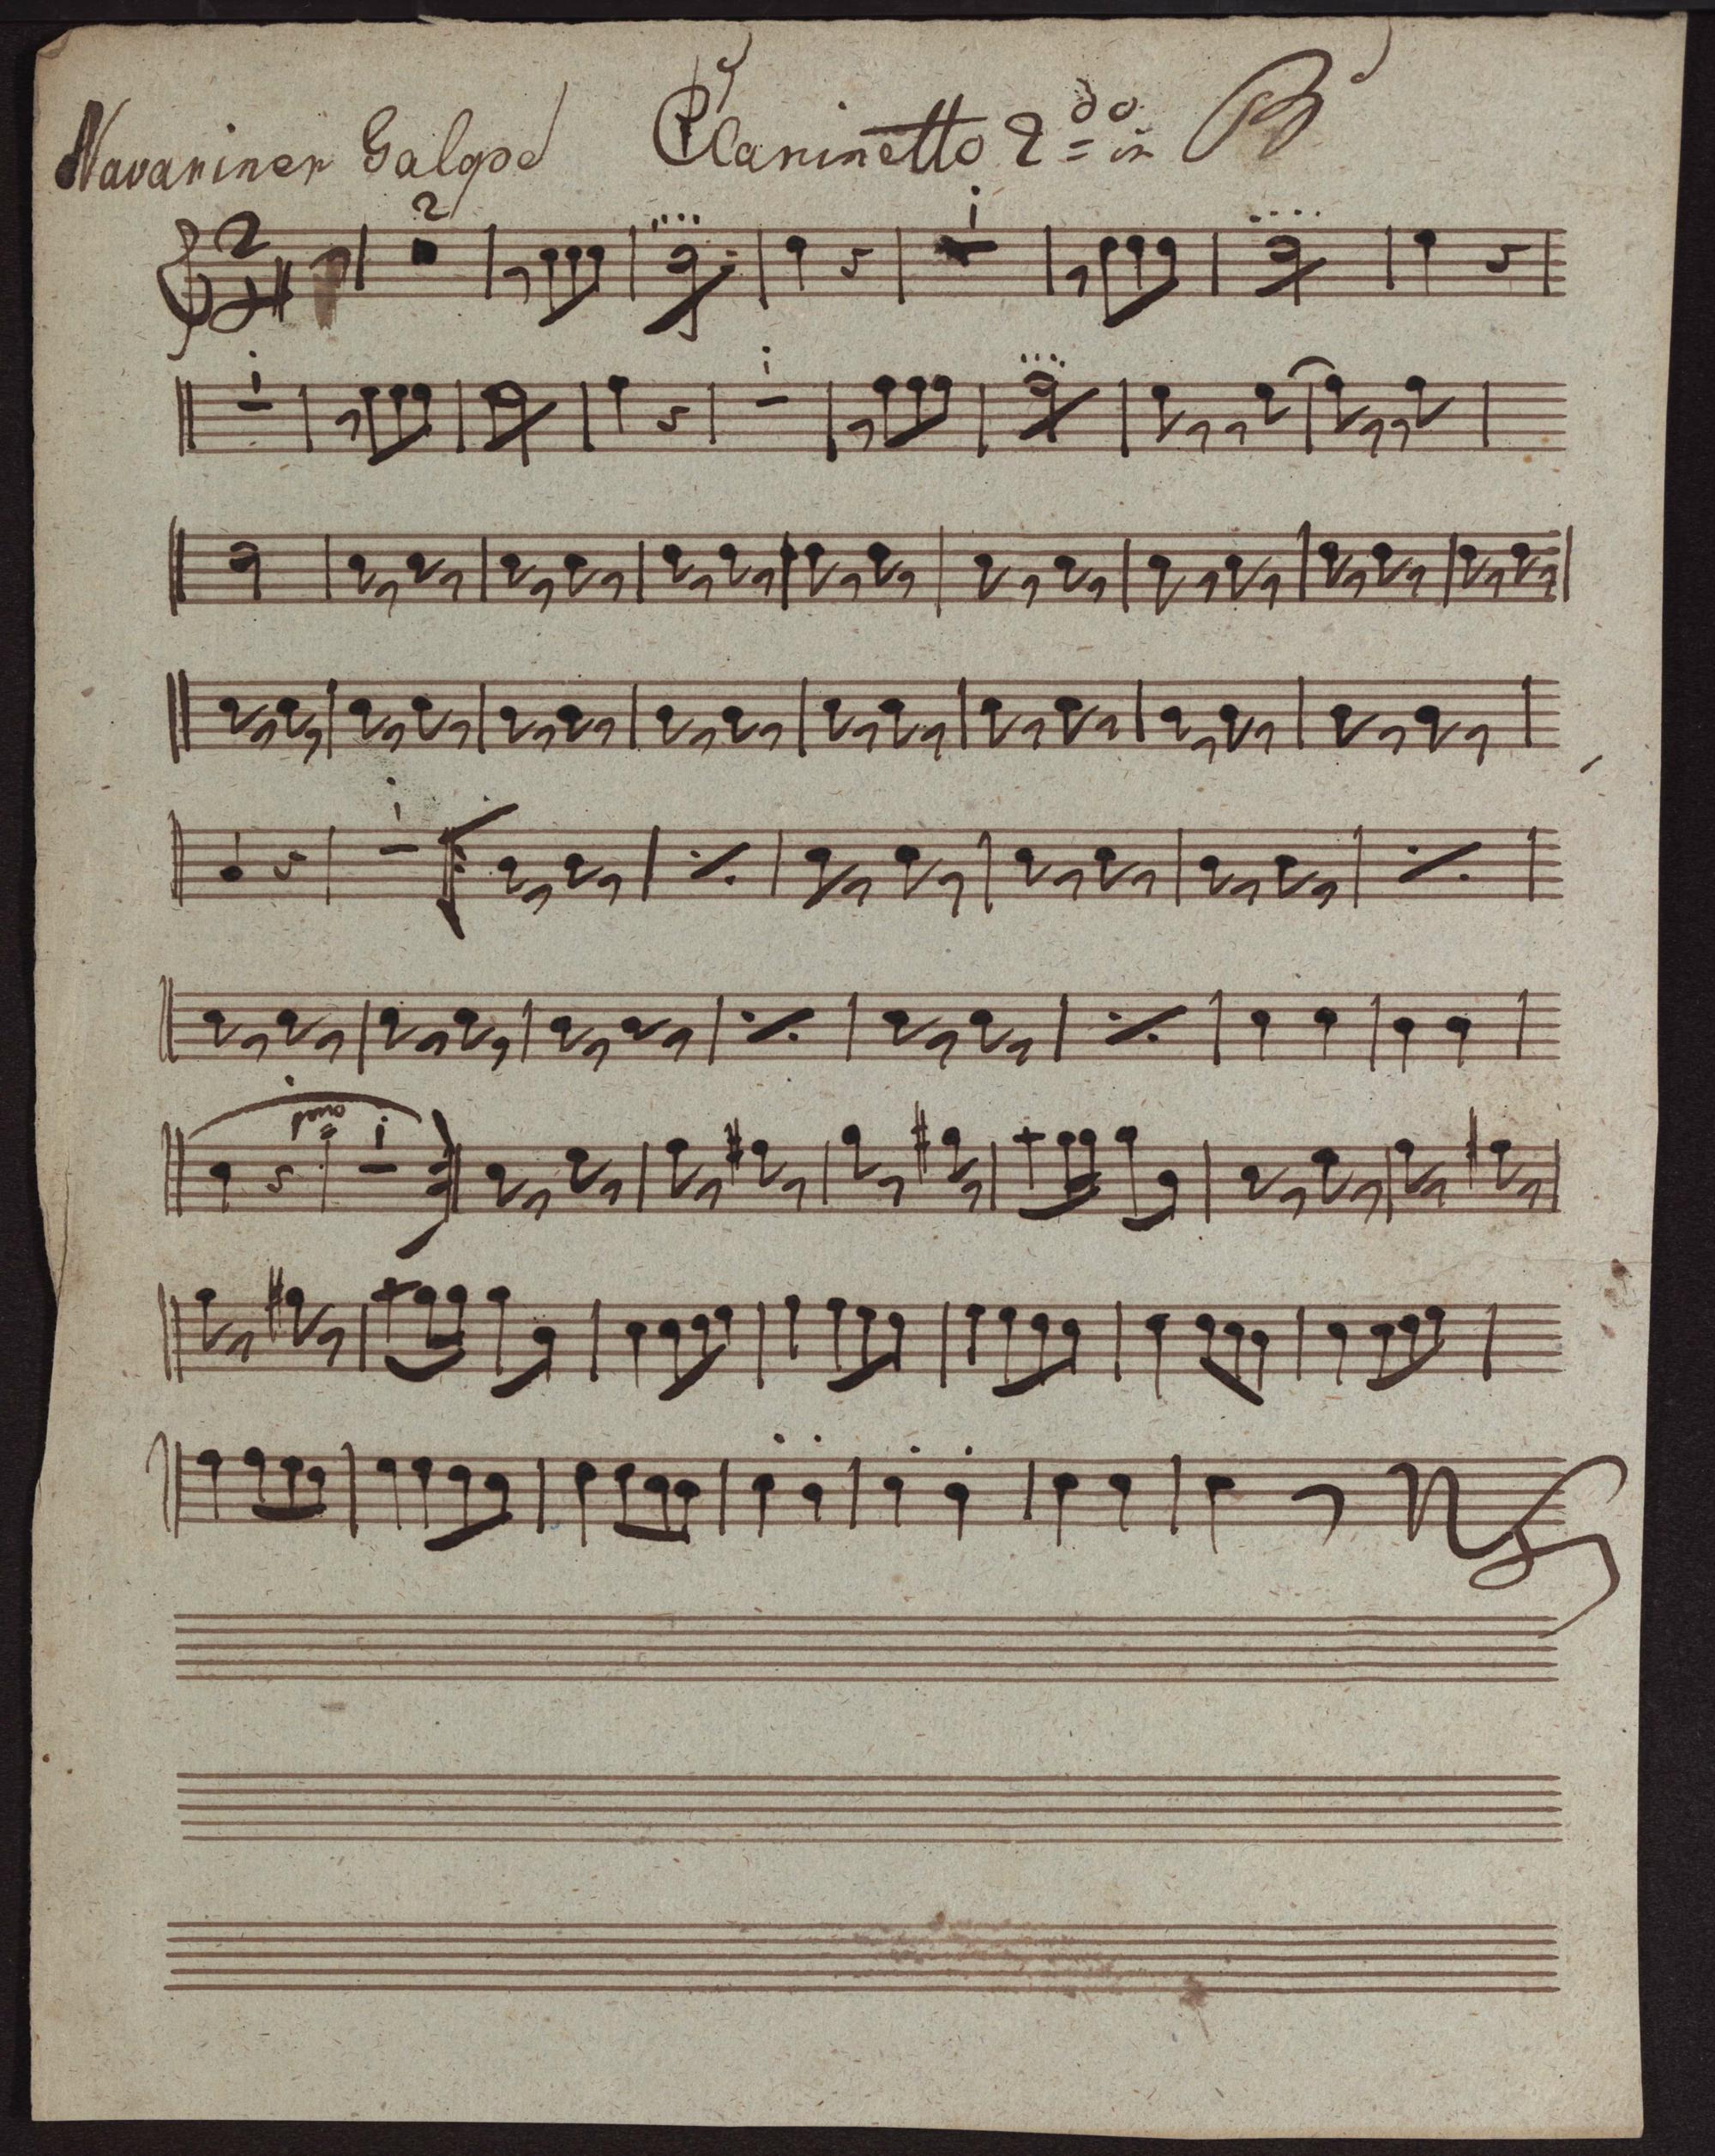 Navariner Galopd Clarinetto 2do in B
2
4
2
1
1
1
1
1
1